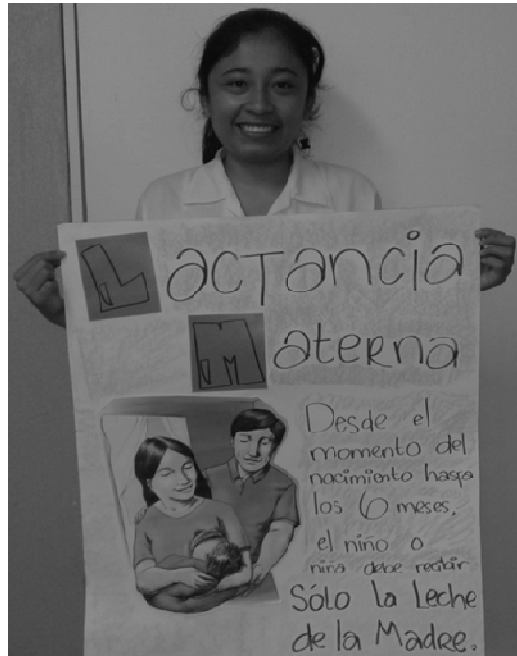 Lactancia
Materna
Desde el
momento del
nacimiento hasta
los 6 meses,
el niño o
niña debe recibir
Sólo la Leche
de la Madre.